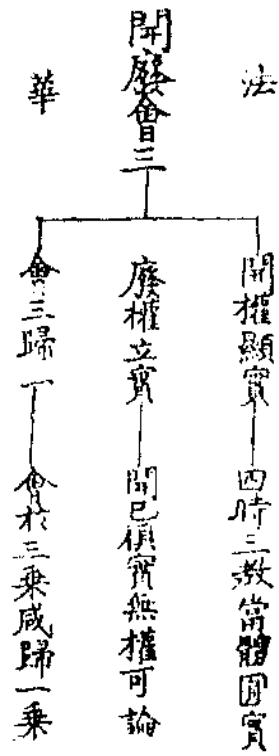 法
開廢會三
華
開權顯實
四時三教當體圓實
廢權立實
開已俱實無權可論
會三歸一
會於三乘咸歸一乘